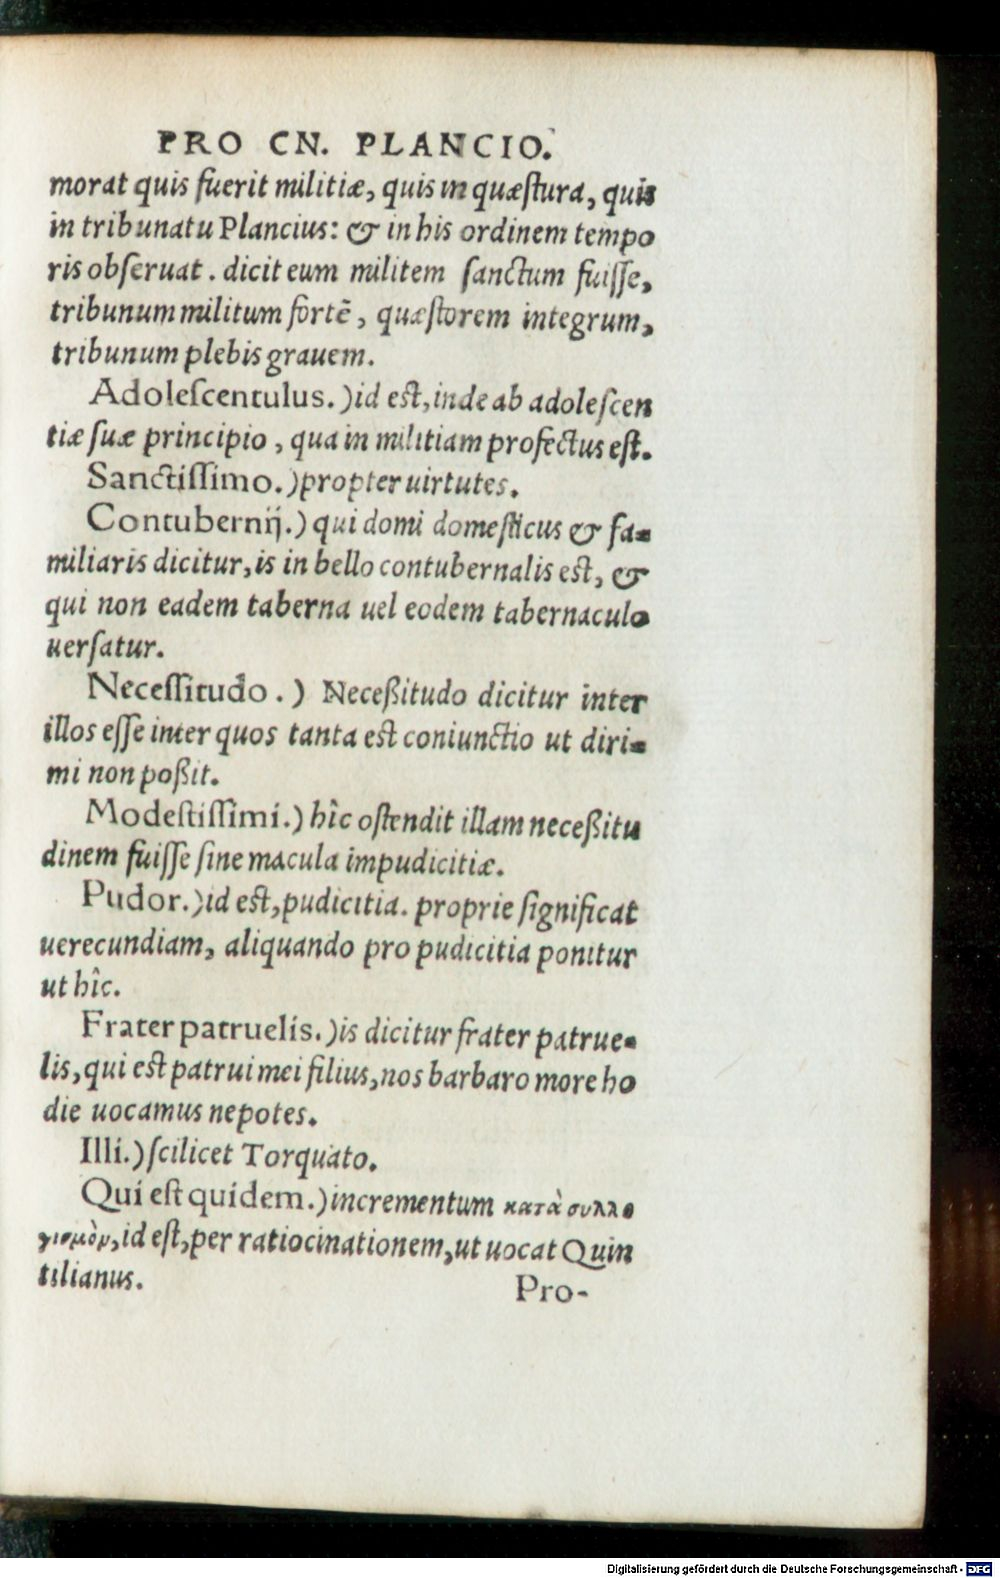 PRO CN. PLANCIO.
morat quis fuerit militiæ, quis in quæſtura, quis
in tribunatu Plancius: & in his ordinem tempo
ris obſeruat. dicit eum militem ſanctum fuiſſe,
tribunum militum fortē, quæſtorem integrum,
tribunum plebis grauem.
Adoleſcentulus.) id eſt, inde ab adoleſcen
tiæ ſuæ principio, qua in militiam profectus eſt.
Sanctiſſimo.) propter uirtutes.
Contubernij.) qui domi domeſticus & fa-
miliaris dicitur, is in bello contubernalis eſt, &
qui non eadem taberna uel eodem tabernaculo
uerſatur.
Neceſſitudo.) Neceßitudo dicitur inter
illos eſſe inter quos tanta eſt coniunctio ut diri-
mi non poßit.
Modeſtiſſimi.) hîc oſtendit illam neceßitu
dinem fuiſſe ſine macula impudicitiæ.
Pudor.) id eſt, pudicitia. proprie ſignificat
uerecundiam, aliquando pro pudicitia ponitur
ut hîc.
Frater patruelis.) is dicitur frater patrue-
lis, qui eſt patrui mei filius, nos barbaro more ho
die uocamus nepotes.
Illi.) ſcilicet Torquato.
Qui eſt quidem.) incrementum κατὰ συλλο
γισμὸν, id eſt, per ratiocinationem, ut uocat Quin
tilianus.
Pro-
Digitalisierung gefördert durch die Deutsche Forschungsgemeinschaft - DFG